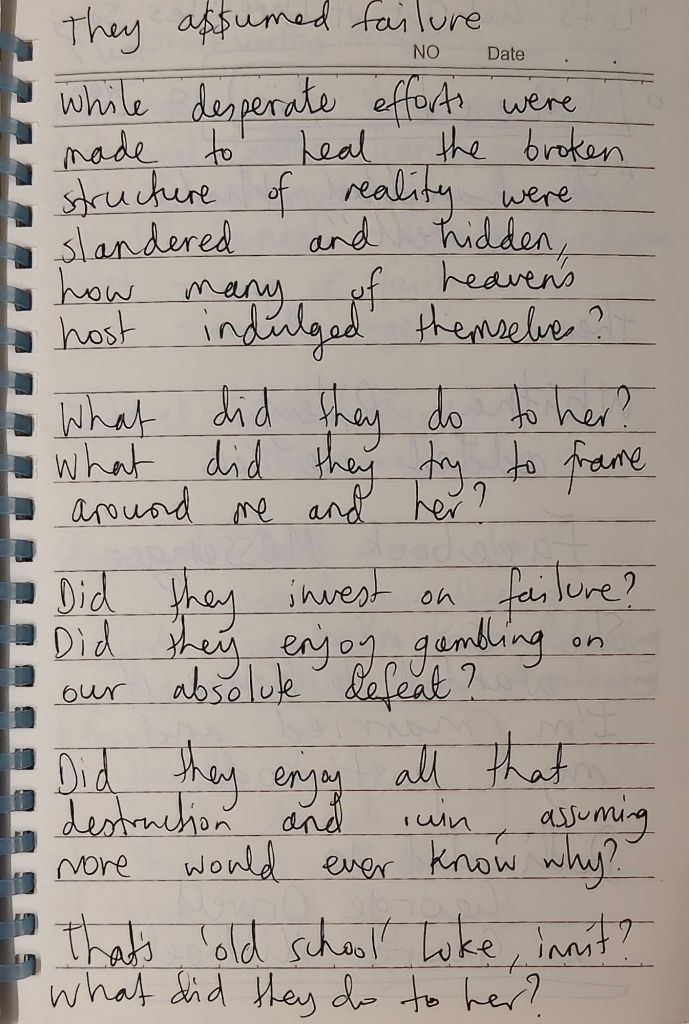 They a$$umed failure
NO Date . .
While desperate efforts were
made to heal the broken
structure of reality were
slandered and hidden,
how many of heaven's
host indulged themselves?
What did they do to her?
What did they try to frame
around me and her?
Did they invest on failure?
Did they enjoy gambling on
our absolute defeat?
Did they enjoy all that
destruction and ruin, assuming
none would ever know why?
That's 'old school' Luke, innit?
What did they do to her?